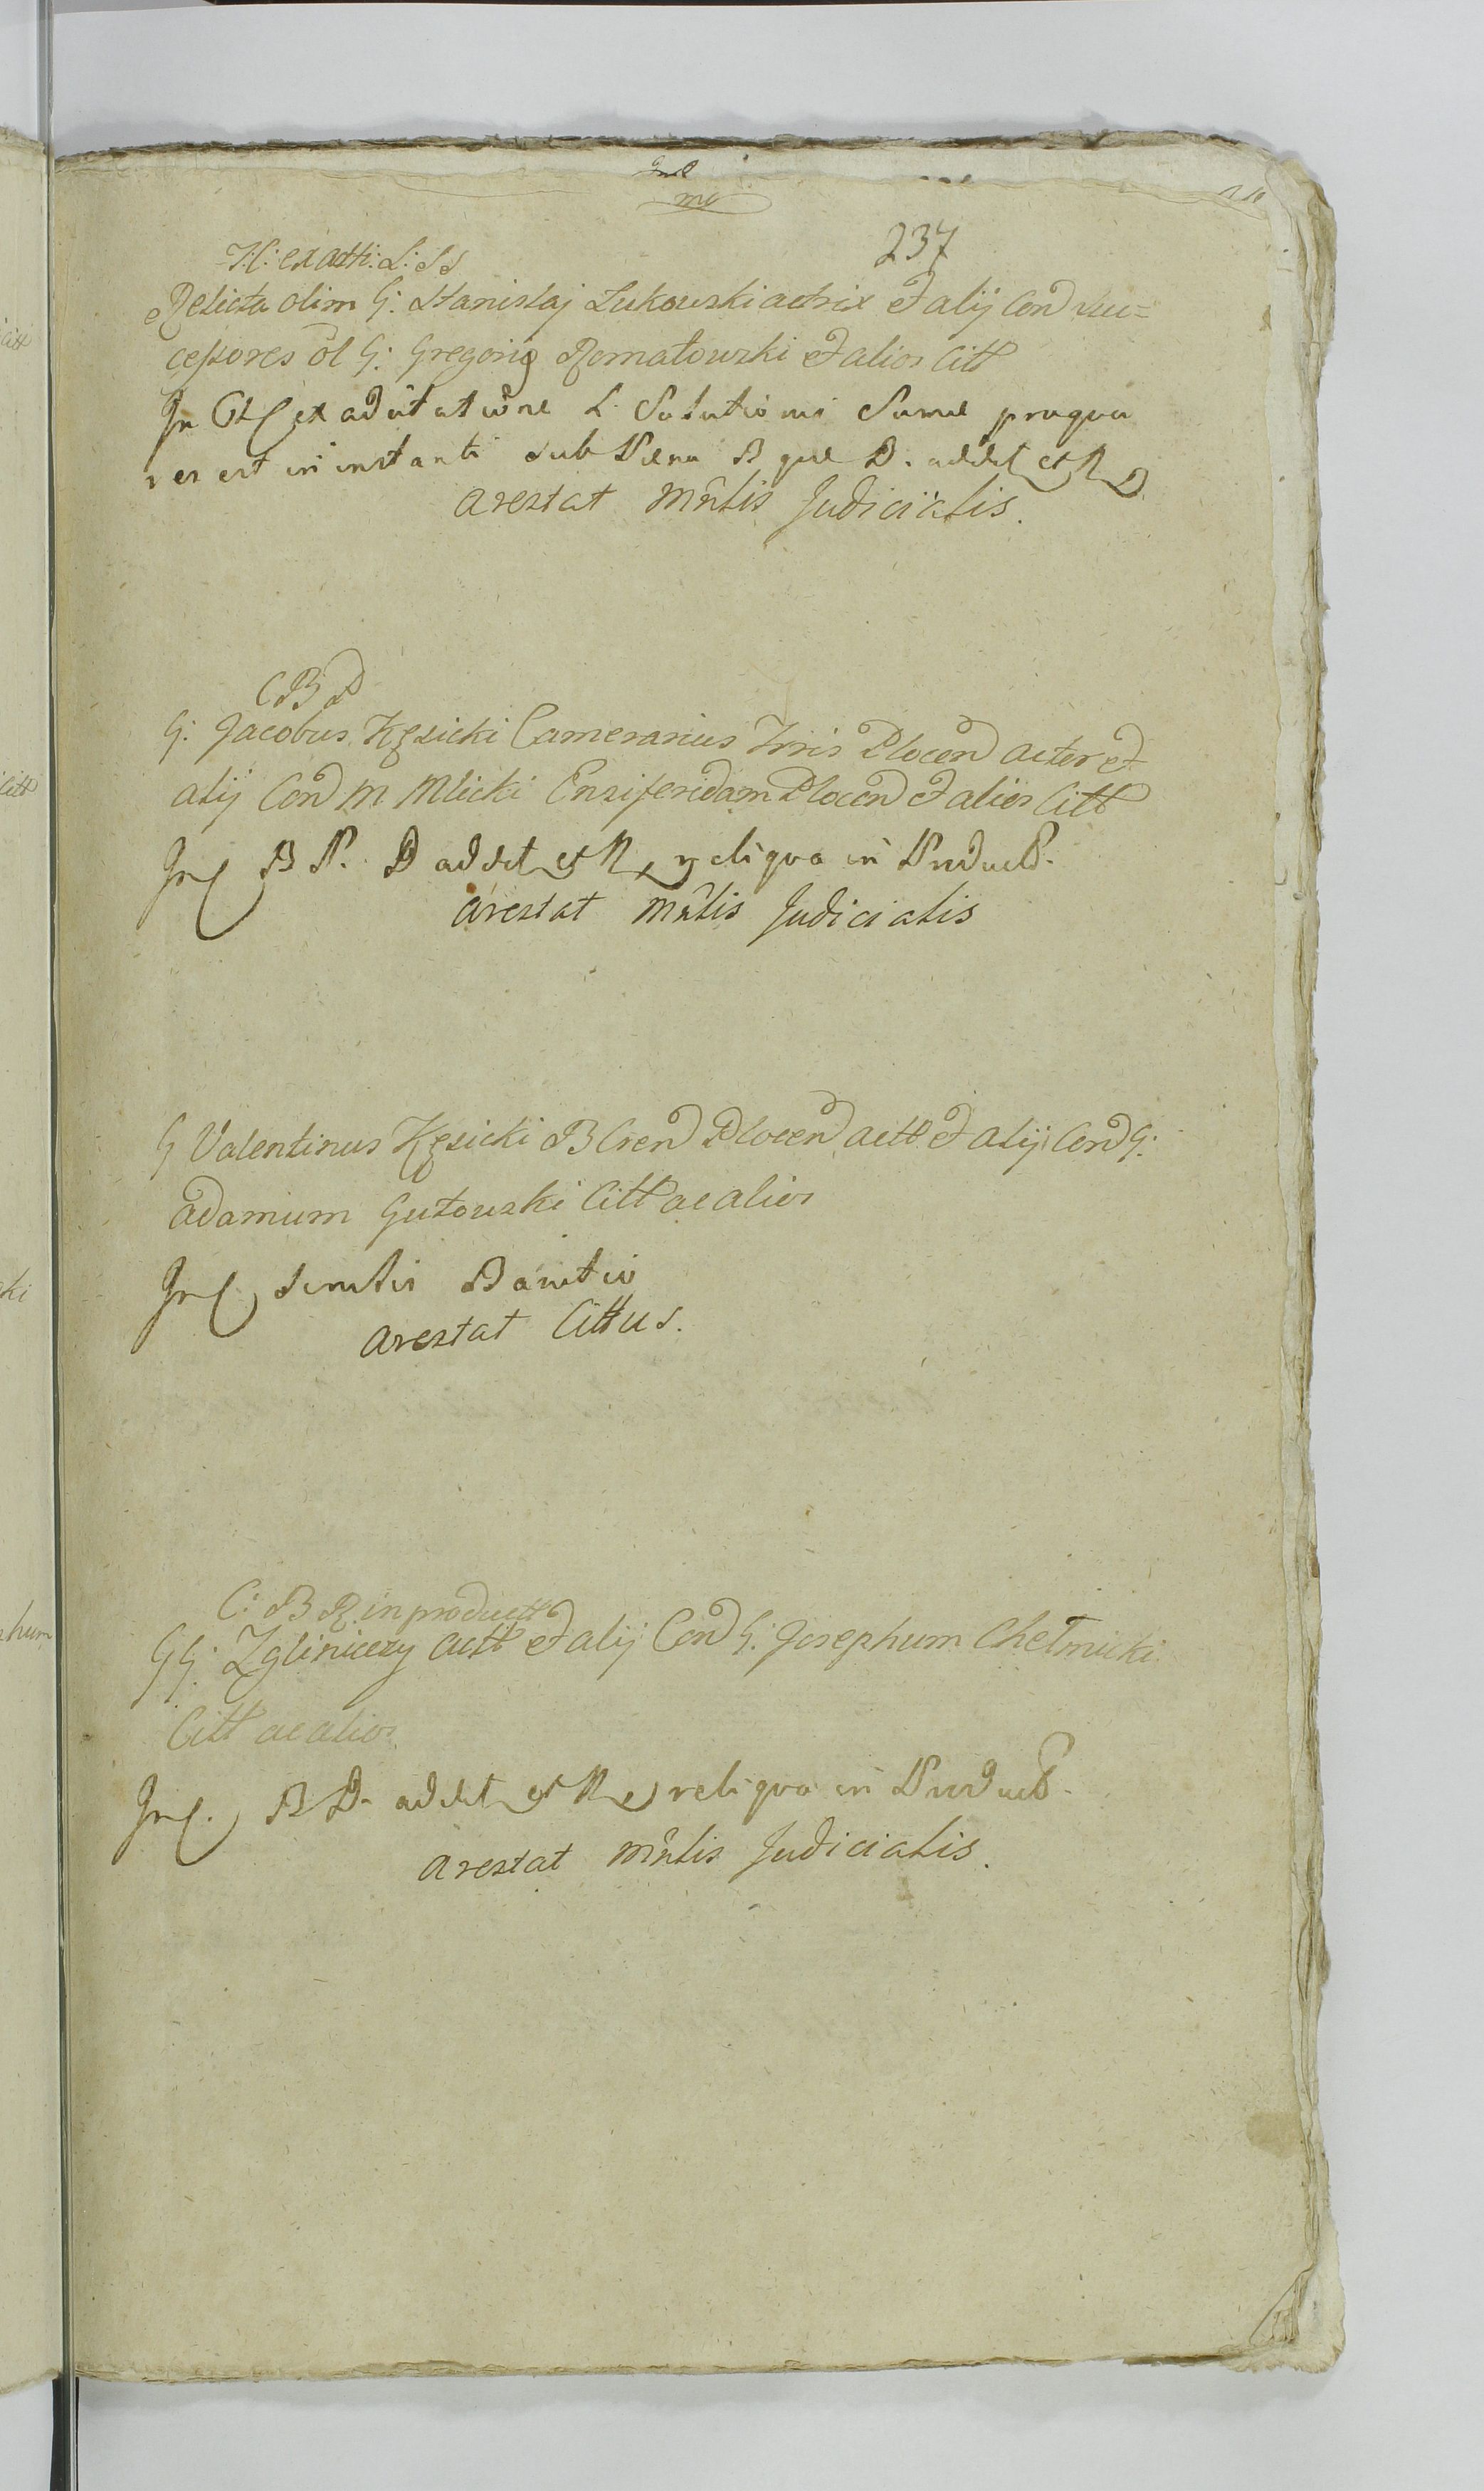 237
H: ex atti: L: SS
Relicta olim G: Stanislaj Łukowski actrix et alij Con suc=
cessores ol G: Gregorig Romatowski et alios Citt
In Ctt ex aduitatione L. Solutionis Sume pro qua
res est in instanti sub Pena B que D. addit et R
arestat Mnlis Judicialis.
C B P
G: Jacobus Kęsicki Camerarius Trris Plocen actor et
alij Con M Mlicki Ensiferidam Plocen et alios Citt
In C B P. D addit et R reliqua in Product.
arestat Mnlis Judicialis
G Valentinus Kęsicki B Cren Plocen actt et alij Con G:
Adamum Gutowski Citt ac alios
In C similis Banitio
arestat Cittus.
C: B R in productt
GG: Zgliniccy actt et alij Con G: Josephum Chełmicki
Citt ac alios
In C. B D. addit et R reliqua in Product.
arestat Mnlis Judicialis.